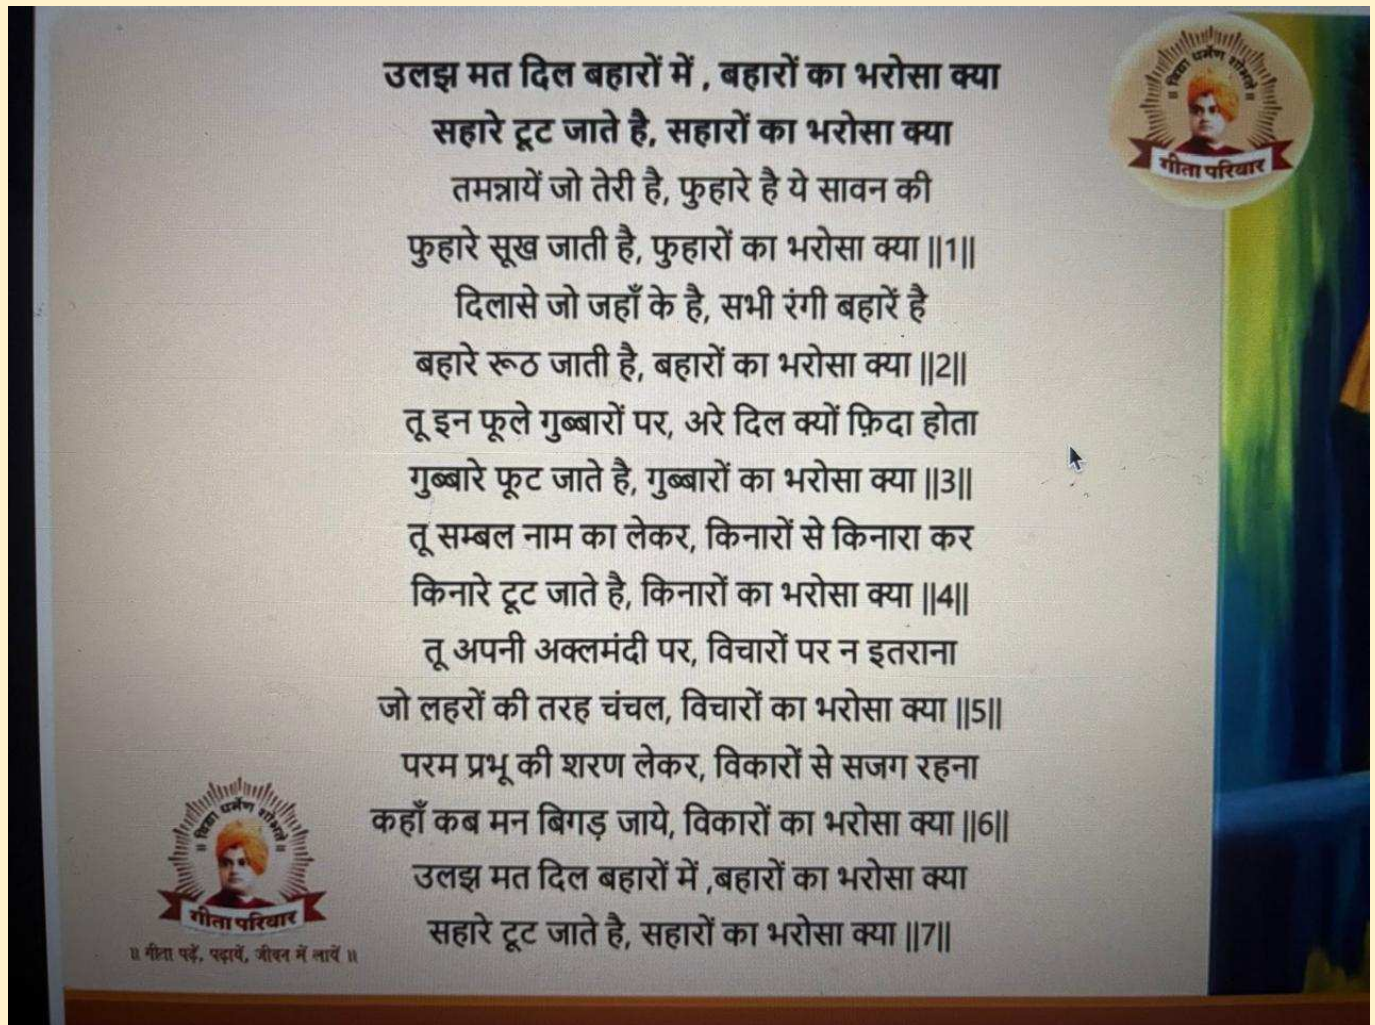 उलझ मत दिल बहारों में , बहारों का भरोसा क्या
सहारे टूट जाते है, सहारों का भरोसा क्या
तमन्नायें जो तेरी है, फुहारे है ये सावन की
फुहारे सूख जाती है, फुहारों का भरोसा क्या ||1||
दिलासे जो जहाँ के है, सभी रंगी बहारें है
बहारे रूठ जाती है, बहारों का भरोसा क्या ||2||
तू इन फूले गुब्बारों पर, अरे दिल क्यों फ़िदा होता
गुब्बारे फूट जाते है, गुब्बारों का भरोसा क्या ||3||
तू सम्बल नाम का लेकर, किनारों से किनारा कर
किनारे टूट जाते है, किनारों का भरोसा क्या ||4||
तू अपनी अक्लमंदी पर, विचारों पर न इतराना
जो लहरों की तरह चंचल, विचारों का भरोसा क्या ||5||
परम प्रभू की शरण लेकर, विकारों से सजग रहना
कहाँ कब मन बिगड़ जाये, विकारों का भरोसा क्या ||6||
उलझ मत दिल बहारों में ,बहारों का भरोसा क्या
सहारे टूट जाते है, सहारों का भरोसा क्या ||7||
॥ विद्या धर्मेण शोभते ॥
गीता परिवार
॥ विद्या धर्मेण शोभते ॥
गीता परिवार
॥ गीता पढ़ें, पढ़ायें, जीवन में लायें ॥